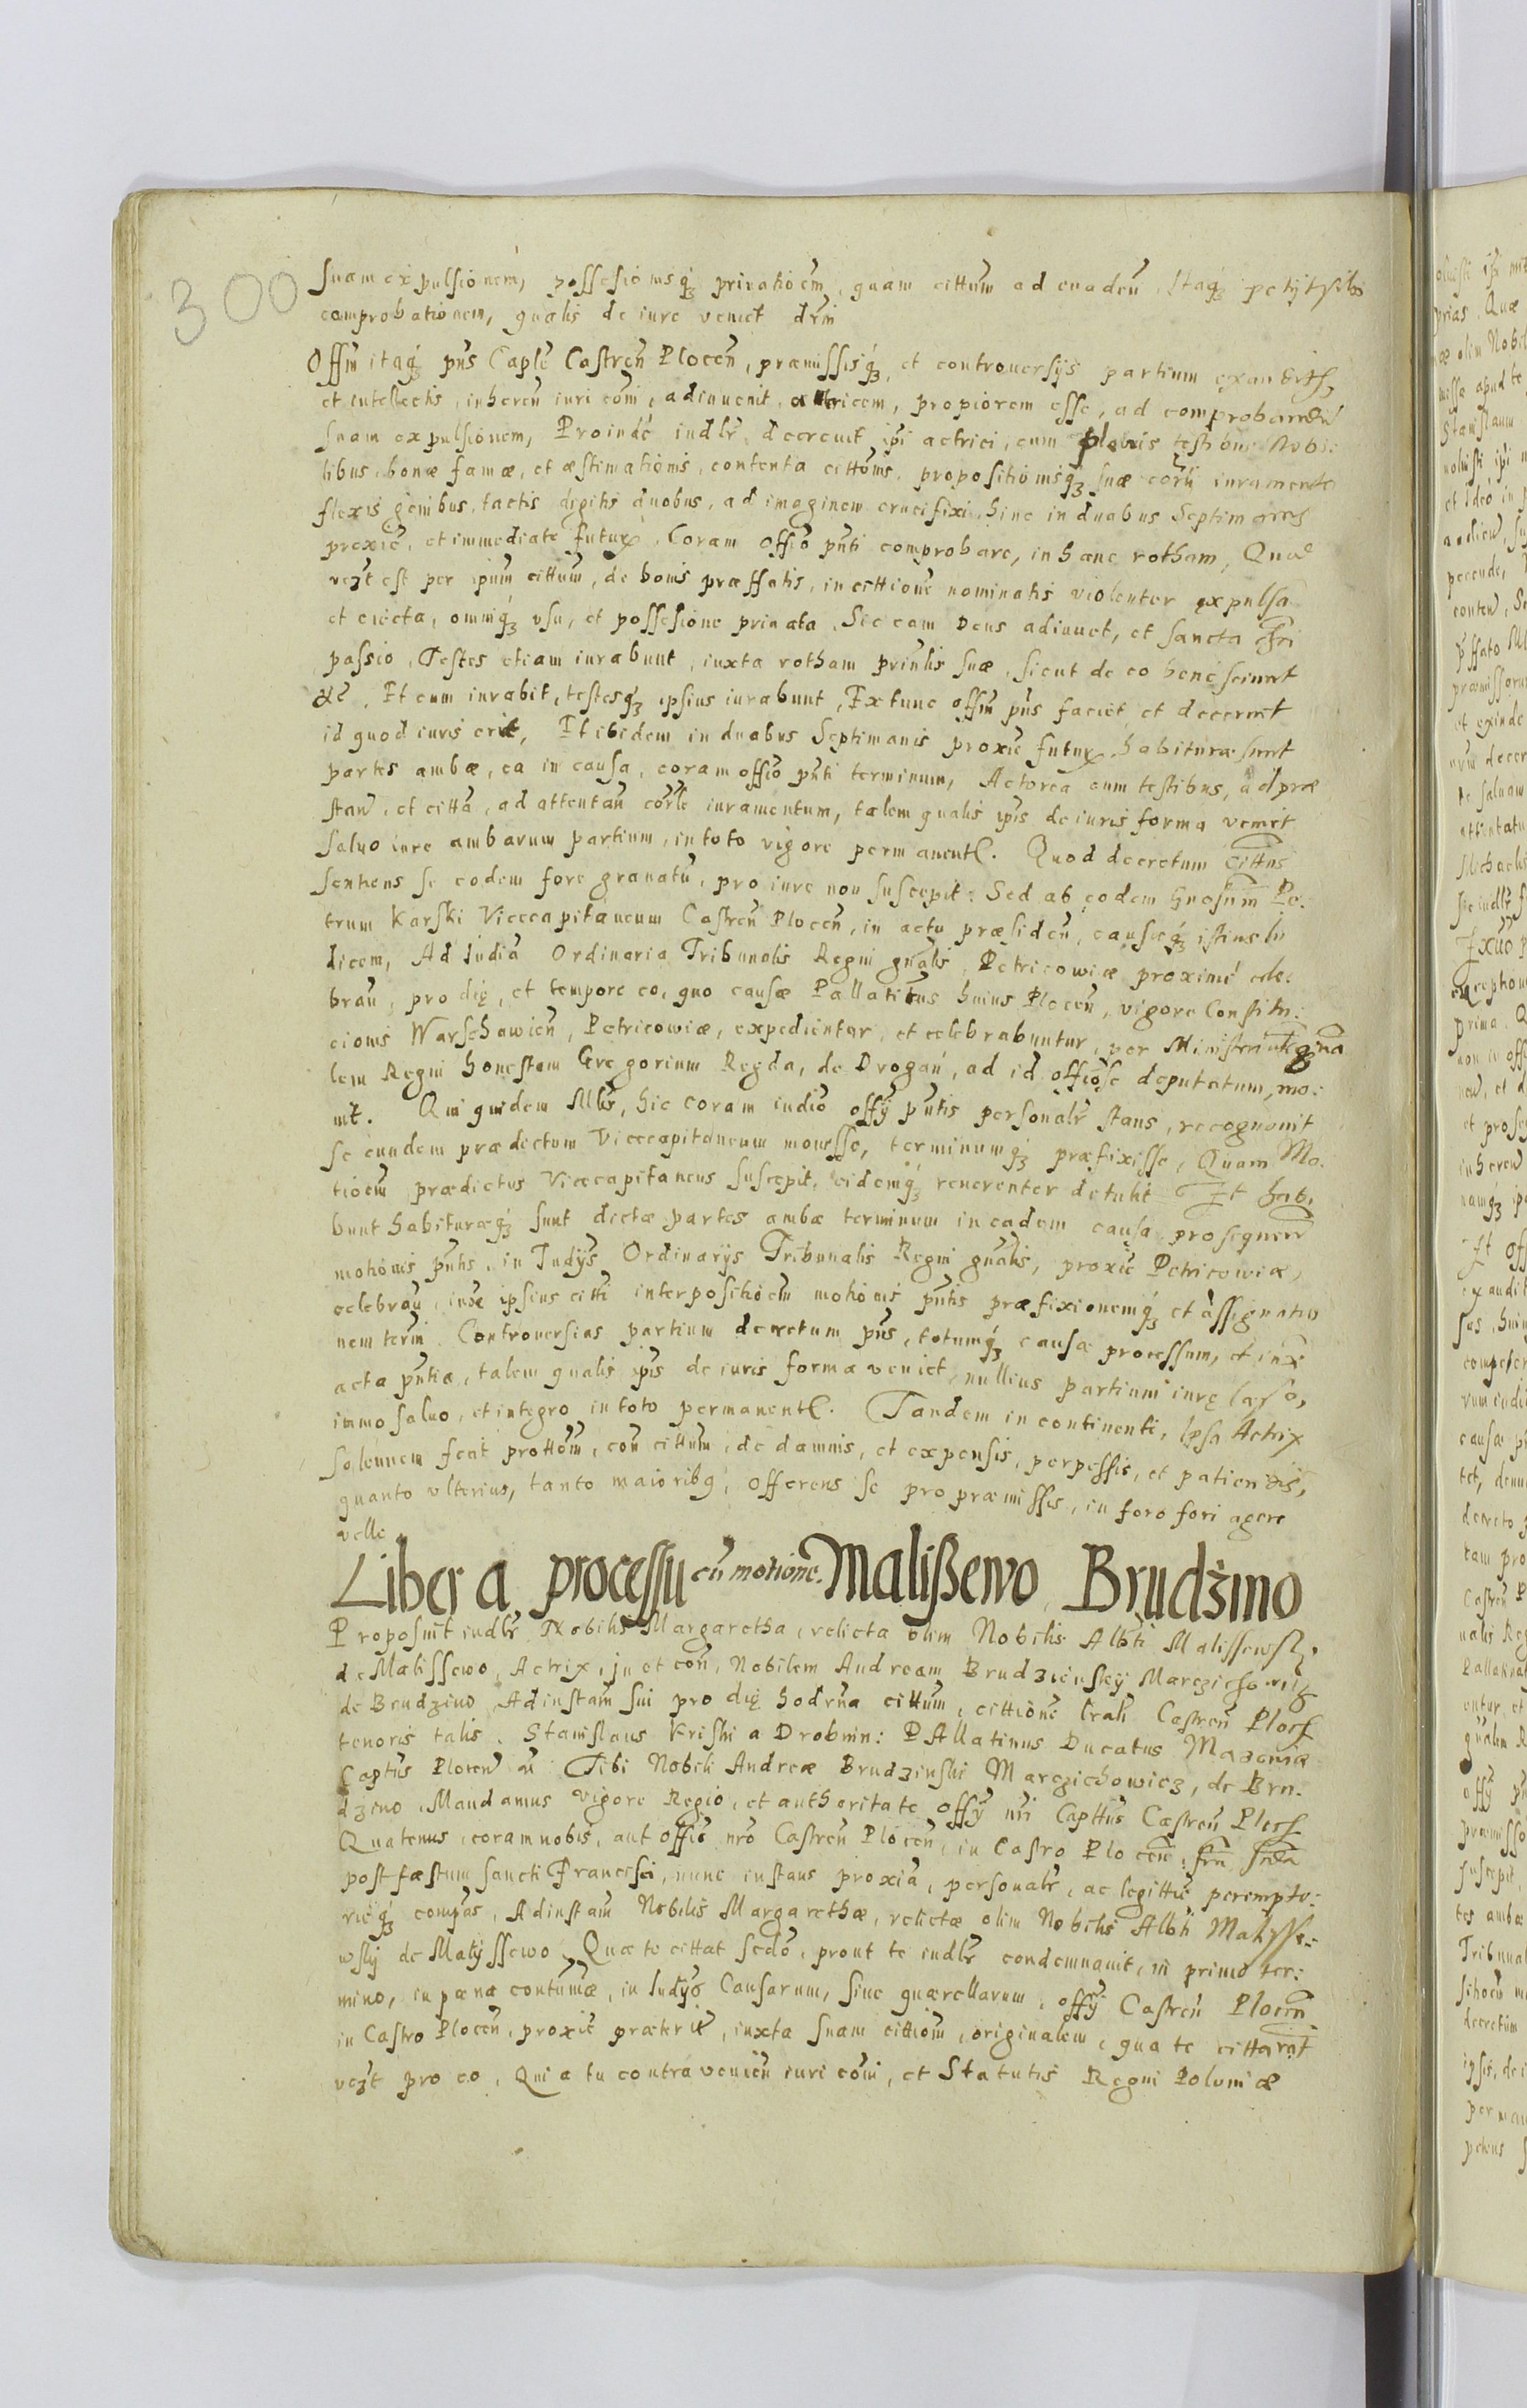 300
Suam expulsionem, possesionisq́ʒ privatioẽm, quam cittum ad euadeñ. Itaqʒ petijt sibi
comprobationem, qualis de iure veniet dr̃mi
Offm̃ itaq́ʒ pñs Caple Castren̄ Plocen̄, præmissisq́ʒ, et controuersijs partium exauditis
et intellectis, inheren̄ iuri cõi, adinuenit actricem, propiorem esse, ad comprobanđ
suam expulsionem, Proindé iudlr̃ decreuit ip̃i actrici, cum testibus Nobi:
libus, bonæ famæ, et æstimationis, contenta cittõnis, propositionisq́ʒ suæ iuramento
flexis genibus, tactis digitis duobus, ad imaginem crucifixi, hinc in duabus Septimanis
proxiẽ, et immediate futur̃, Coram offiõ pñti comprobare, in hanc rotham, Quæ
veʒt est per ipm̃ cittum, de bonis præffatis, in cittione nominatis violenter expulsa
et eiecta, omniq́ʒ vsu, et possesione priuata. Sic eam Deus adiuuet, et sancta
passio, Testes etiam iurabunt, iuxta rotham prinlis suæ, sicut de eo bené sciunt
Et cum iurabit, testesq́ʒ ipsius iurabunt, Extunc offm̃ pñs faciet et decernet
id quod iuris erit, Et ibidem in duabus Septimanis proxiẽ futur̃ habituræ sunt
partes ambæ, ea in causa, coram offiõ pñti terminum, Actorea cum testibus, ad præ
stan̄, et citta, ad attentan̄ iuramentum, talem qualis ip̃is de iuris forma veniet
saluo iure ambarum partium, in toto vigore permanent̃. Quod decretum Cittus
sentiens se eodem fore grauatũ, pro iure non suscepit: Sed ab eodem Gnosum Pe:
trum Karski Vicecapitaneum Castren̄ Plocen̄, in actu præsiden̄, causæq́ʒ istius Iu
dicem, Ad Iudia Ordinaria Tribunalis Regni gnalis, Petricowiæ proximé cele:
bran̄, pro dię, et tempore eo, quo causæ Pallatinatus huius Plocen̄, vigore Constitu:
cionis Warschawien̄, Petricowiæ, expedientur, et celebrabuntur, per Ministerialem
lem Regni honestum Gregorium Regda, de Drogan̄, ad id officiose deputatum, mo:
uit. Qui quidem Mlis, hic coram iudio offij pñtis personalr̃ stans, recognouit
se eundem prædictum Vicecapitaneum mouisse, terminumq́ʒ præfixisse, Quam Mo:
tioẽm prædictus Vicecapitaneus suscepit, eidemq́ʒ reuerenter detulit Et hab:
bunt habituræq́ʒ sunt dictæ partes ambæ terminum in eadem causa prosequen̄
motionis pñtis, in Iudijs Ordinarijs Tribunalis Regni gnalis, proxiẽ Petricowiæ,
celebran̄, ipsius citti interpositioẽm motionis pñtis præfixionemq́ʒ et assignatio
nem term̃i Controuersias partium decretum pñs, totumq́ʒ causæ processum, et
acta pñtia, talem qualis ip̃is de iuris forma veniet, nullius partium iurę læso,
immo saluo, et integro in toto permanent̃. Tandem in continenti, Ipsa Actrix
solennem fecit prottõm, con̄ cittum, de damnis, et expensis, perpessis, et patiendis,
quanto vlterius, tanto maioribq́, offerens se pro præmissis, in foro fori agere
velle
Liber a processu cũ motione. Malißewo Brudzino
Proposuit iudlr̃ Nobilis Margaretha, relicta olim Nobilis Albti Malissewsk,
de Malissewo, Actrix, in et con̄, Nobilem Andream Brudzienskÿ Marczichowicz
de Brudzino, Ad instam̃ sui pro dię hodrna cittum, cittione lrali Castren̄ Ploc̃
tenoris talis. Stanislaus Kriski a Drobnin: PAllatinus Ducatus Mazouiæ
Captũs Plocen̄ Tibi Nobili Andreæ Brudzinski Marczichowicz, de Bru:
dzino, Mandamus vigore Regio, et authoritate offij nr̃i Capttus Castren̄ Ploc̃
Quatenus, coram nobis, aut offiõ nr̃o Castren̄ Plocen̄, in Castro Plocen̄
post fæstum sancti Francisci, nunc instans proxia, personalr̃, ac legittiẽ perempto:
rieq́ʒ compas, Ad instam̃ Nobilis Margarethæ, relictæ olim Nobilis Albti Malysse:
wskj de Malijssewo, Quæ te cittat sedõ, prout te iudlr̃ condemnauit, in primo ter:
mino, in pæna contumæ, in Iudijs Causarum, siue quærellarum, offij Castren̄ Plocen̄
in Castro Plocen̄, proxiẽ præterit̃, iuxta suam cittiom̃, originalem, qua te cittarat
veʒt pro eo, Quia tu contraueniẽn iuri cõi, et Statutis Regni Poloniæ